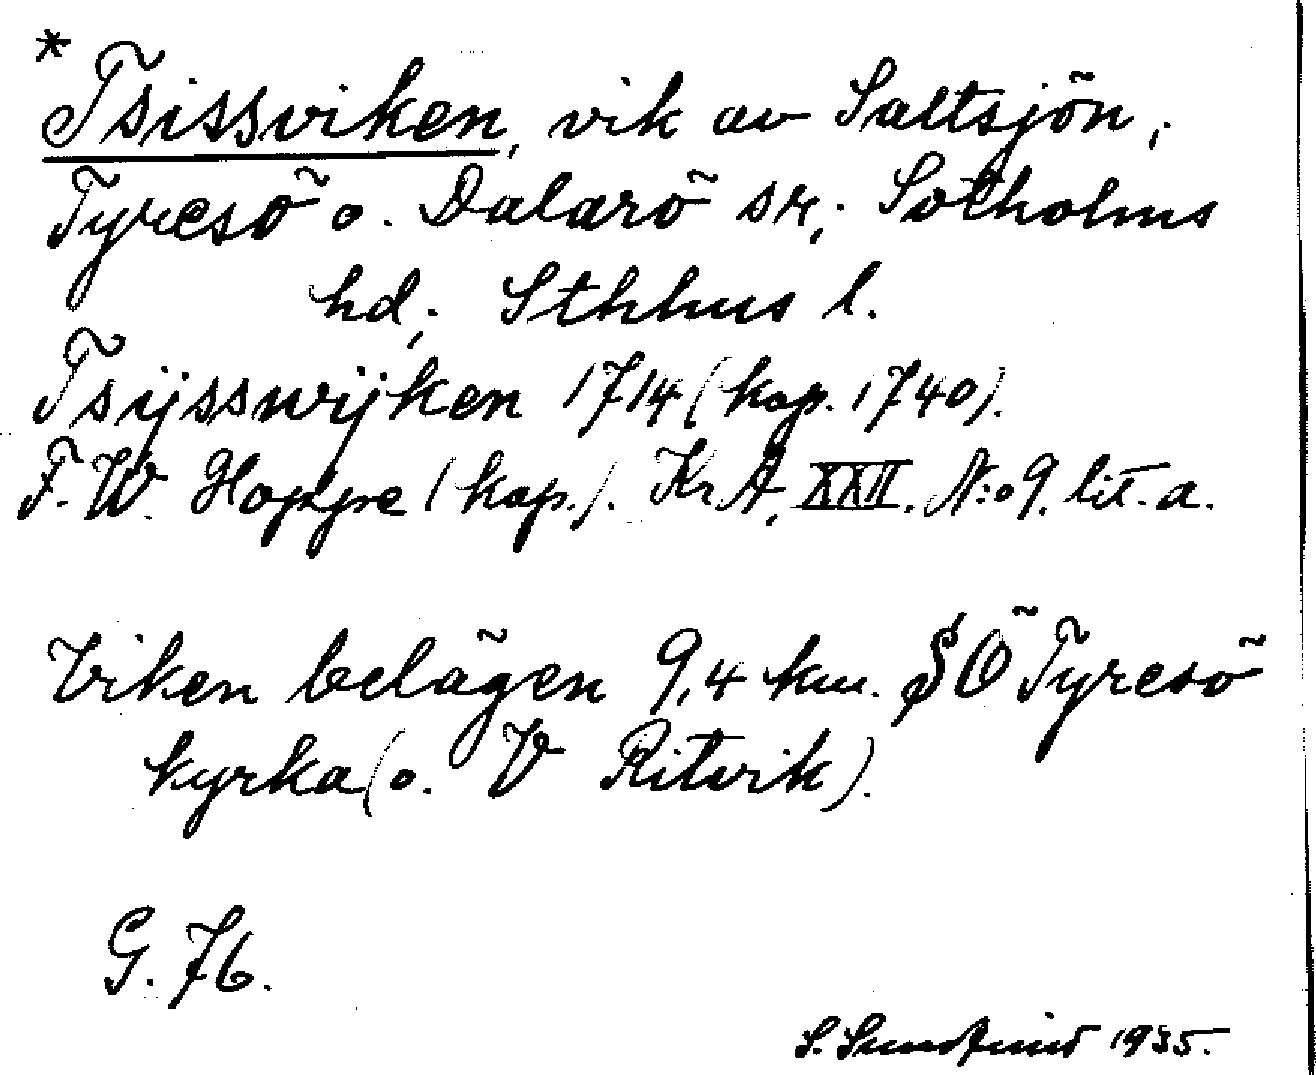 *
Tsissviken, vik av Saltsjön;
Tyresö o. Dalarö sn; Sotholms
hd; Sthlms l.
Tsijsswijken 1714 (kop. 1740).
F. W. Hoppe (kop.). Kr. A, XXII. N:o 9. lit. a.
Viken belägen 9,4 km. SÖ Tyresö
kyrka (o. V Ritvik).
G. 76.
S. 1935.